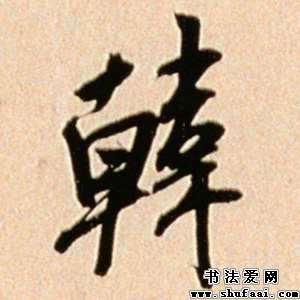 韓
书法爱网
www.shufaai.com